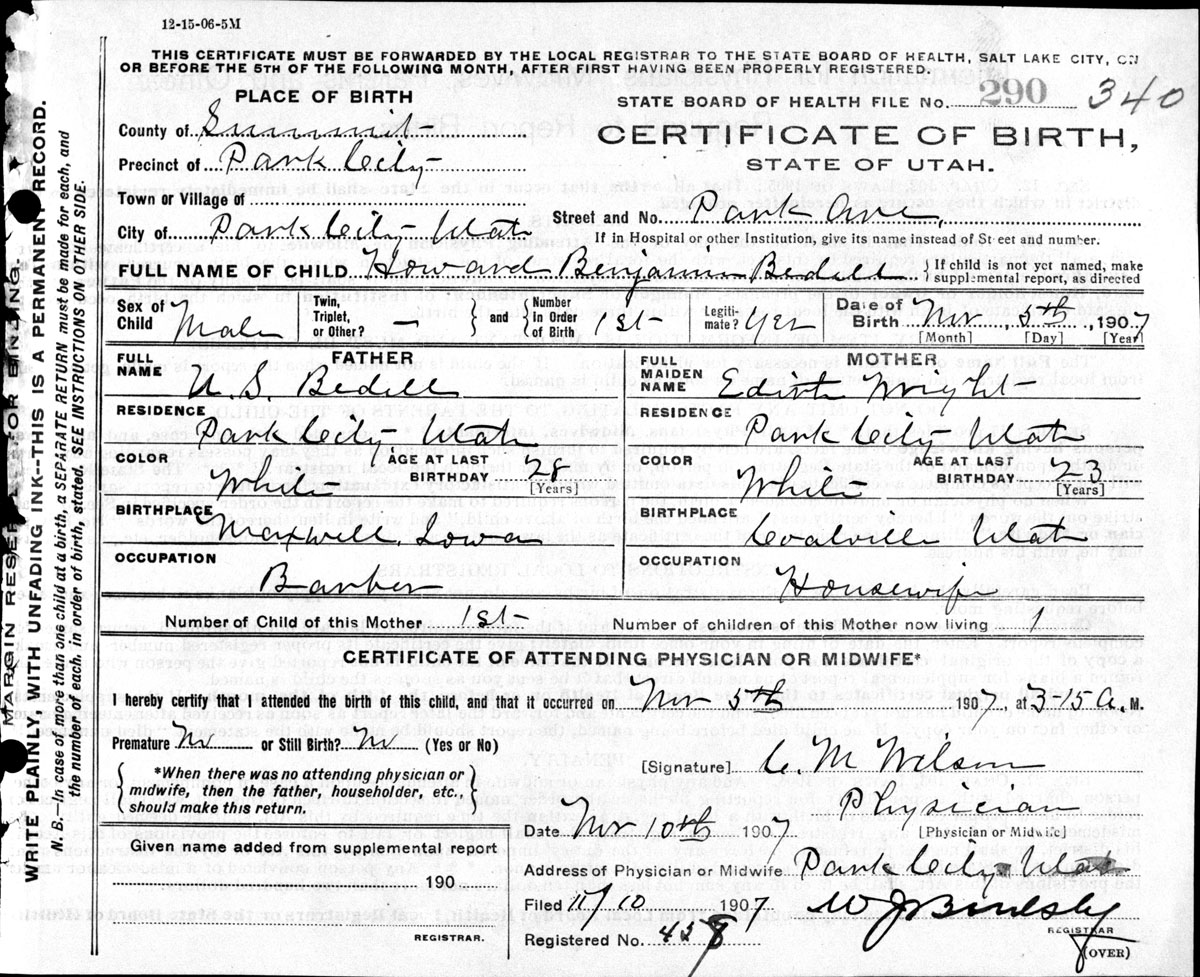 12-15-06-5M
THIS CERTIFICATE MUST BE FORWARDED BY THE LOCAL REGISTRAR TO THE STATE BOARD OF HEALTH, SALT LAKE CITY, ON
OR BEFORE THE 5TH OF THE FOLLOWING MONTH, AFTER FIRST HAVING BEEN PROPERLY REGISTERED.
PLACE OF BIRTH
County of Summit
Precinct of Park City
Town or Village of
City of Park City Utah
STATE BOARD OF HEALTH FILE No. 290 340
CERTIFICATE OF BIRTH,
STATE OF UTAH.
Street and No. Park Ave,
If in Hospital or other Institution, give its name instead of Street and number.
FULL NAME OF CHILD Howard Benjamin Bedell { If child is not yet named, make
supplemental report, as directed
Sex of Child Male
Twin, Triplet, or Other? -
and { Number In Order of Birth 1st
Legiti-mate? Yes
Date of Birth Nov, 5th, 1907
[Month] [Day] [Year]
FATHER
FULL NAME
Bedell
RESIDENCE
Park City Utah
COLOR White
AGE AT LAST BIRTHDAY 28
[Years]
BIRTHPLACE
Maxwell, Iowa
OCCUPATION
Barber
MOTHER
FULL MAIDEN NAME Edith Wright
RESIDENCE
Park City Utah
COLOR White
AGE AT LAST BIRTHDAY 23
[Years]
BIRTHPLACE
Coalville Utah
OCCUPATION
Housewife
Number of Child of this Mother 1st
Number of children of this Mother now living 1
CERTIFICATE OF ATTENDING PHYSICIAN OR MIDWIFE*
I hereby certify that I attended the birth of this child, and that it occurred on Nov 5th 1907, at 3-15 A. M.
Premature No or Still Birth? No (Yes or No)
*When there was no attending physician or
midwife, then the father, householder, etc.,
should make this return.
Given name added from supplemental report
190
REGISTRAR.
[Signature] C M Wilson
Physician
[Physician or Midwife]
Date Nov 10th 1907
Address of Physician or Midwife Park City Utah
Filed 11/10 1907
REGISTRAR
Registered No. 428
(OVER)
MARGIN RESERVED FOR BINDING.
WRITE PLAINLY, WITH UNFADING INK--THIS IS A PERMANENT RECORD.
N. B.--In case of more than one child at a birth, a SEPARATE RETURN must be made for each, and
the number of each, in order of birth, stated. SEE INSTRUCTIONS ON OTHER SIDE.